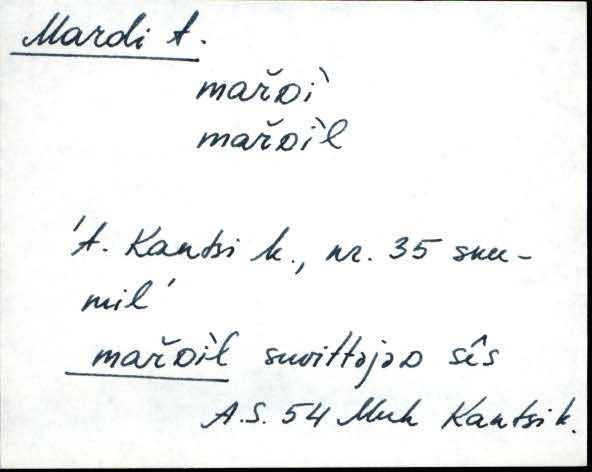 Mardi t.
mařᴅi`
mařᴅi`l
't. Kantsi k., nr. 35 suu-
mil'
mařᴅi`l suvittəjəᴅ sê̬s
A.S. 54 Muh Kantsi k.